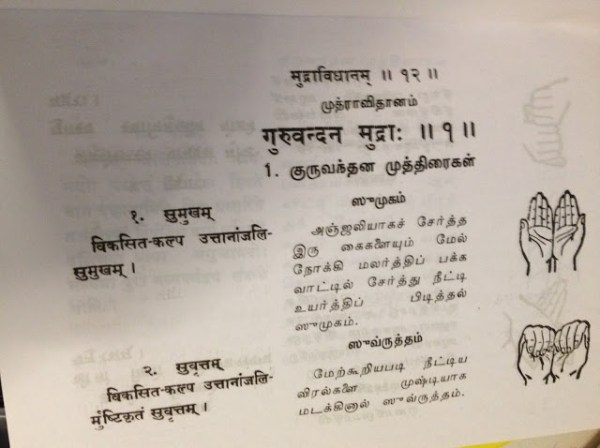 मुद्राविधानम् ॥ १२ ॥
முத்ராவிதானம்
गुरुवन्दन मुद्राः ॥ १ ॥
1. குருவந்தன முத்திரைகள்
१. सुमुखम्
विकसित-कल्प उत्तानांजलि-
सुमुखम् ।
ஸுமுகம்
அஞ்ஜலியாகச் சேர்த்த
இரு கைகளையும் மேல்
நோக்கி மலர்த்திப் பக்க
வாட்டில் சேர்த்து நீட்டி
உயர்த்திப் பிடித்தல்
ஸுமுகம்.
२. सुवृत्तम्
विकसित-कल्प उत्तानांजलि-
मुंष्टिकृतं सुवृत्तम् ।
ஸுவ்ருத்தம்
மேற்கூறியபடி நீட்டிய
விரல்களை முஷ்டியாக
மடக்கினால் ஸுவ்ருத்தம்.